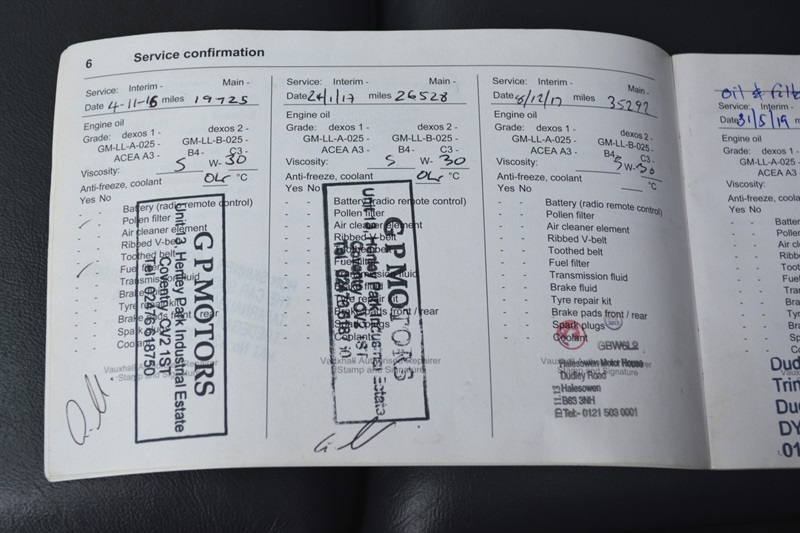 6 Service confirmation
Service: Interim - Main -
Date 4-11-16 miles 19725
Engine oil
Grade: dexos 1 - dexos 2 -
GM-LL-A-025 - GM-LL-B-025 -
ACEA A3 - B4 - C3 -
Viscosity: 5 W- 30
Anti-freeze, coolant °C
Yes No
- - Battery (radio remote control)
- - Pollen filter
- - Air cleaner element
- - Ribbed V-belt
- - Toothed belt
- - Fuel filter
- - Transmission fluid
- - Brake fluid
- - Tyre repair kit
- - Brake pads front / rear
- - Spark plugs
- - Coolant
Stamp and Signature
G P MOTORS
Unit 13, Henley Park Industrial Estate
Coventry CV2 1ST
Tel: 02476 618750
Service: Interim - Main -
Date 24/1/17 miles 26528
Engine oil
Grade: dexos 1 - dexos 2 -
GM-LL-A-025 - GM-LL-B-025 -
ACEA A3 - B4 - C3 -
Viscosity: 5 W- 30
Anti-freeze, coolant °C
Yes No
- - Battery (radio remote control)
- - Pollen filter
- - Air cleaner element
- - Ribbed V-belt
- - Toothed belt
- - Fuel filter
- - Transmission fluid
- - Brake fluid
- - Tyre repair kit
- - Brake pads front / rear
- - Spark plugs
- - Coolant
Vauxhall Authorised Repairer
Stamp and Signature
G P MOTORS
Unit 13, Henley Park Industrial Estate
Coventry CV2 1ST
Service: Interim - Main -
Date 8/12/17 miles 35292
Engine oil
Grade: dexos 1 - dexos 2 -
GM-LL-A-025 - GM-LL-B-025 -
ACEA A3 - B4 - C3 -
Viscosity: 5 W- 30
Anti-freeze, coolant °C
Yes No
- - Battery (radio remote control)
- - Pollen filter
- - Air cleaner element
- - Ribbed V-belt
- - Toothed belt
- - Fuel filter
- - Transmission fluid
- - Brake fluid
- - Tyre repair kit
- - Brake pads front / rear
- - Spark plugs
- - Coolant
GBW6L2
Halesowen Motor House
Dudley Road
Halesowen
B63 3NH
Tel:- 0121 503 0001
oil & filt
Service: Interim -
Date 31/5/19 m
Engine oil
Grade: dexos 1 -
GM-LL-A-025 -
ACEA A3 -
Viscosity:
Anti-freeze, coolan
Yes No
- - Batter
- - Pollen
- - Air cle
- - Ribb
- - Tooth
- - Fuel
- - Tra
- - Bra
- - Tyr
- - Br
- - S
- - C
Dud
Trim
Du
DY
01